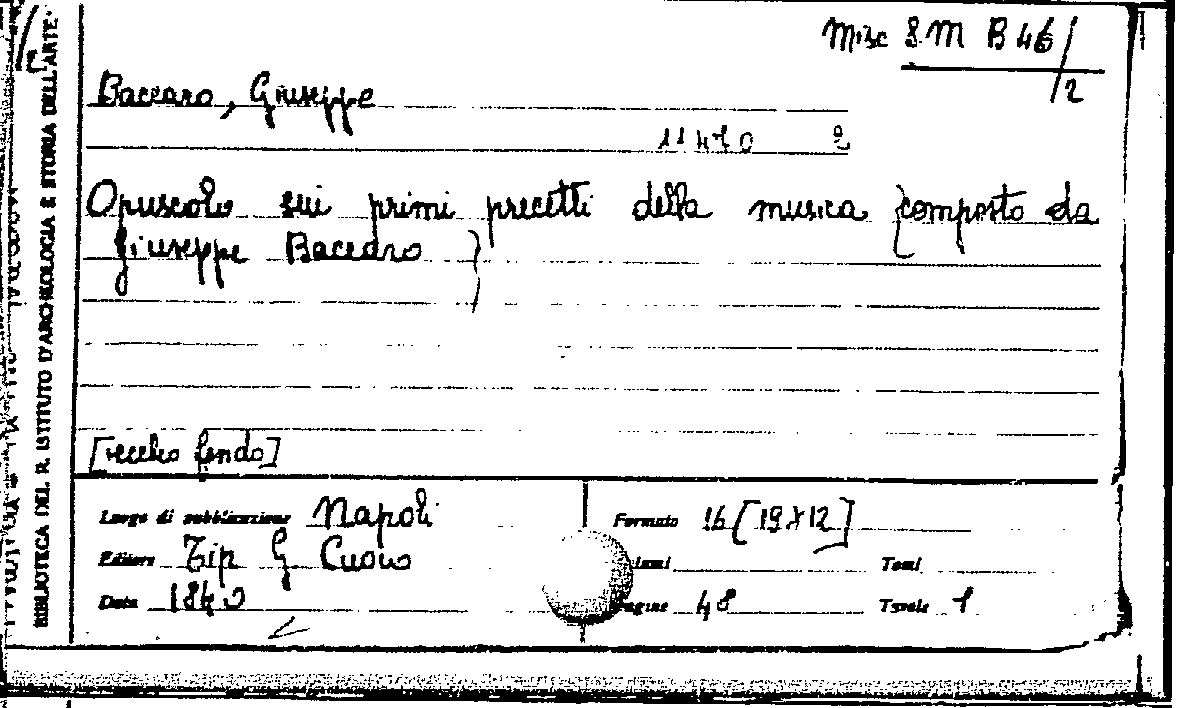 Misc S.M B 46/2
Baccaro, Giuseppe
11470 2
Opuscolo sui primi precetti della musica (composto da
Giuseppe Baccaro)
[vecchio fondo]
Luogo di pubblicazione Napoli
Formato 16 [19X12]
Editore Tip G Cuomo
Tomi
Data 1840
Pagine 48
Tavole 1
BIBLIOTECA DEL R. ISTITUTO D'ARCHEOLOGIA E STORIA DELL'ARTE